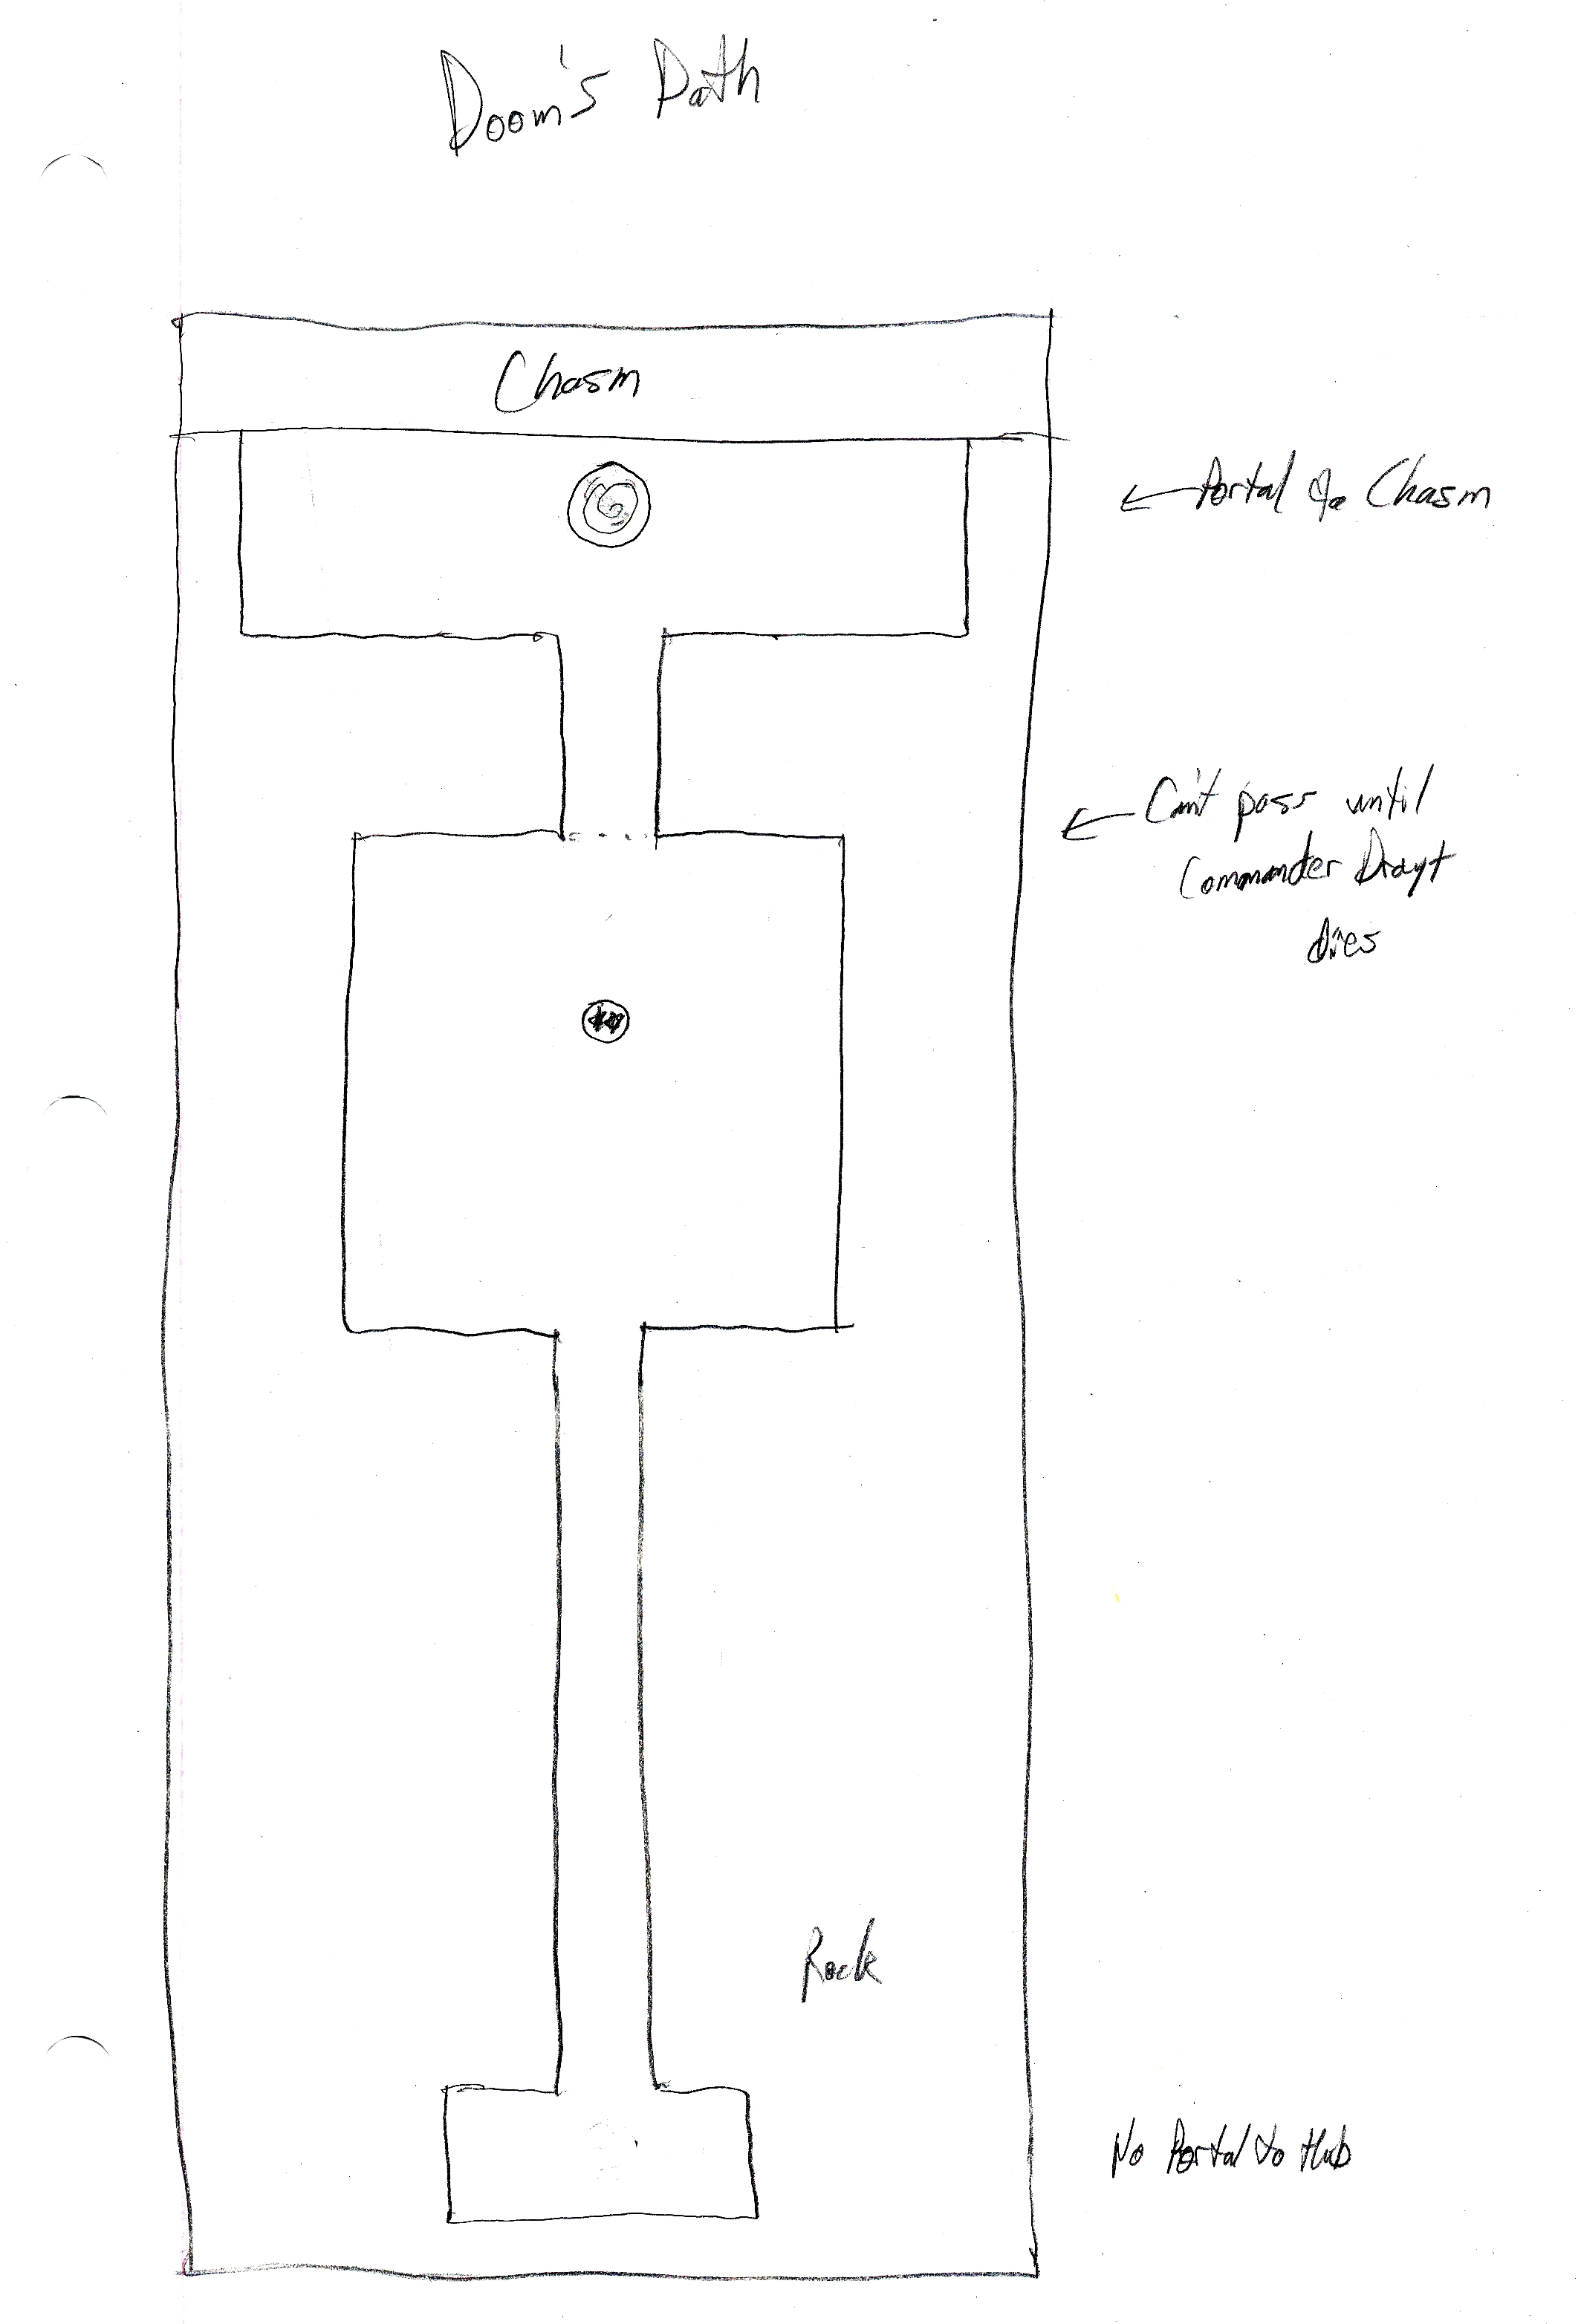 Doom's Path
Chasm
Portal to Chasm
Can't pass until
Commander Drayt
dies
Rock
No Portal to Hub